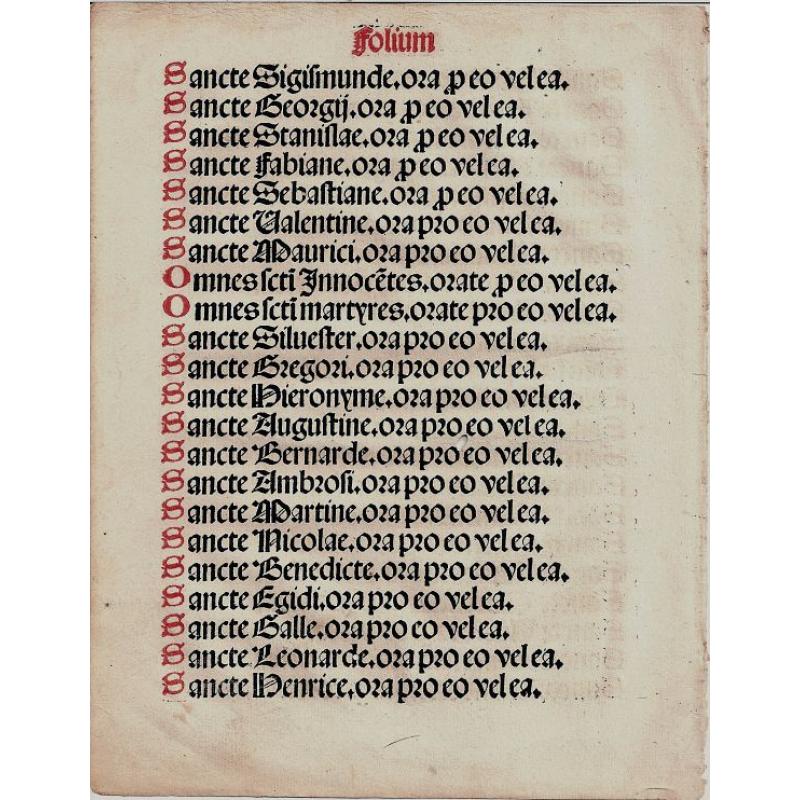 Folium
Sancte Sigiſmunde.ora ꝓ eo vel ea.
Sancte Georgij.ora ꝓ eo vel ea.
Sancte Staniſlae.ora ꝓ eo vel ea.
Sancte Fabiane.ora ꝓ eo vel ea.
Sancte Sebaſtiane.ora ꝓ eo vel ea.
Sancte Valentine.ora pro eo vel ea.
Sancte Maurici.ora pro eo vel ea.
Omnes ſcti Innocētes.orate ꝓ eo vel ea.
Omnes ſcti martyres.orate pro eo vel ea.
Sancte Silueſter.ora pro eo vel ea.
Sancte Gregori.ora pro eo vel ea.
Sancte Hieronyme.ora pro eo vel ea.
Sancte Auguſtine.ora pro eo vel ea.
Sancte Bernarde.ora pro eo vel ea.
Sancte Ambroſi.ora pro eo vel ea.
Sancte Martine.ora pro eo vel ea.
Sancte Nicolae.ora pro eo vel ea.
Sancte Benedicte.ora pro eo vel ea.
Sancte Egidi.ora pro eo vel ea.
Sancte Galle.ora pro eo vel ea.
Sancte Leonarde.ora pro eo vel ea.
Sancte Henrice.ora pro eo vel ea.